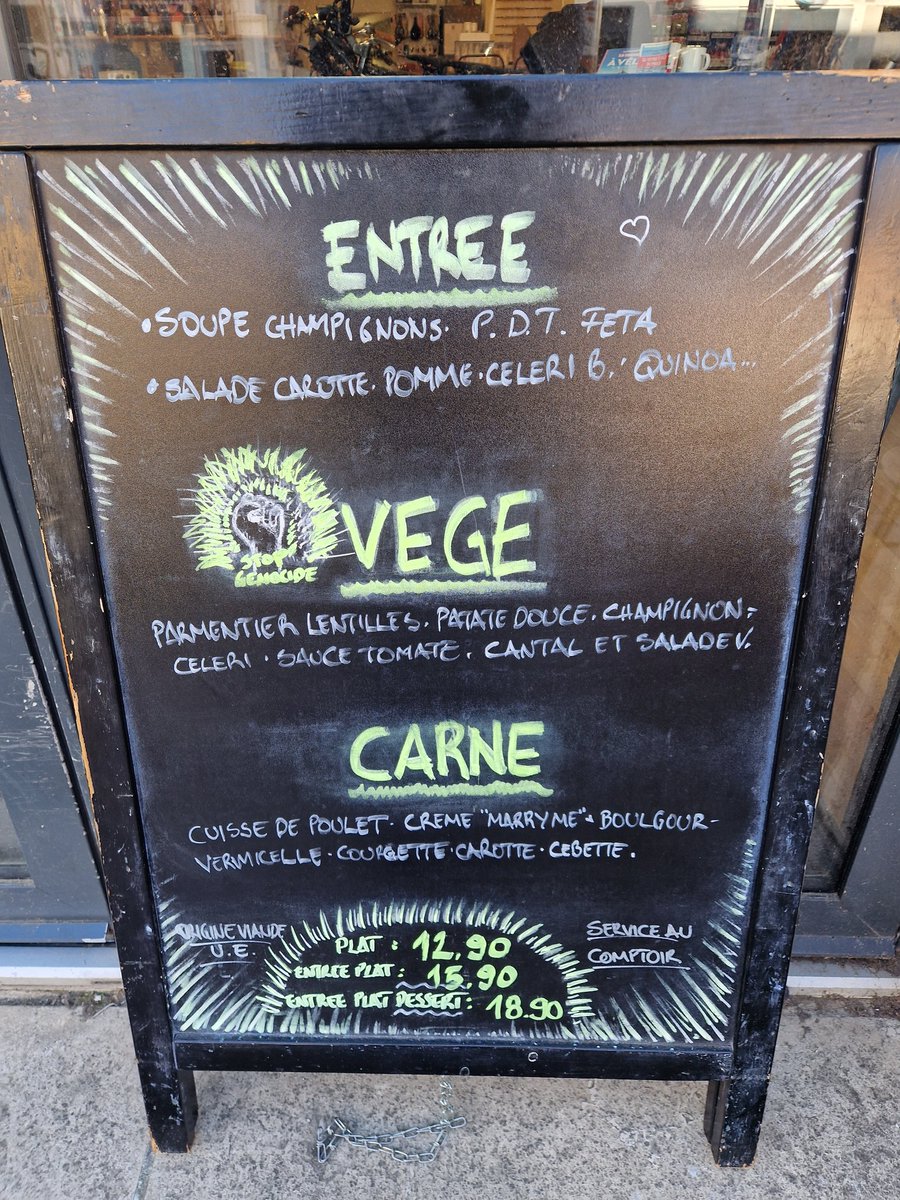 ENTREE
• SOUPE CHAMPIGNONS. P.D.T. FETA
• SALADE CAROTTE. POMME. CELERI B. QUINOA...
STOP
GENOCIDE
VEGE
PARMENTIER LENTILLES. PATATE DOUCE. CHAMPIGNON.
CELERI. SAUCE TOMATE. CANTAL ET SALADE V.
CARNE
CUISSE DE POULET. CREME "MARRY ME". BOULGOUR-
VERMICELLE. COURGETTE. CAROTTE. CEBETTE.
ORIGINE VIANDE
U.E.
PLAT : 12.90
ENTREE PLAT : 15.90
ENTREE PLAT DESSERT : 18.90
SERVICE AU
COMPTOIR